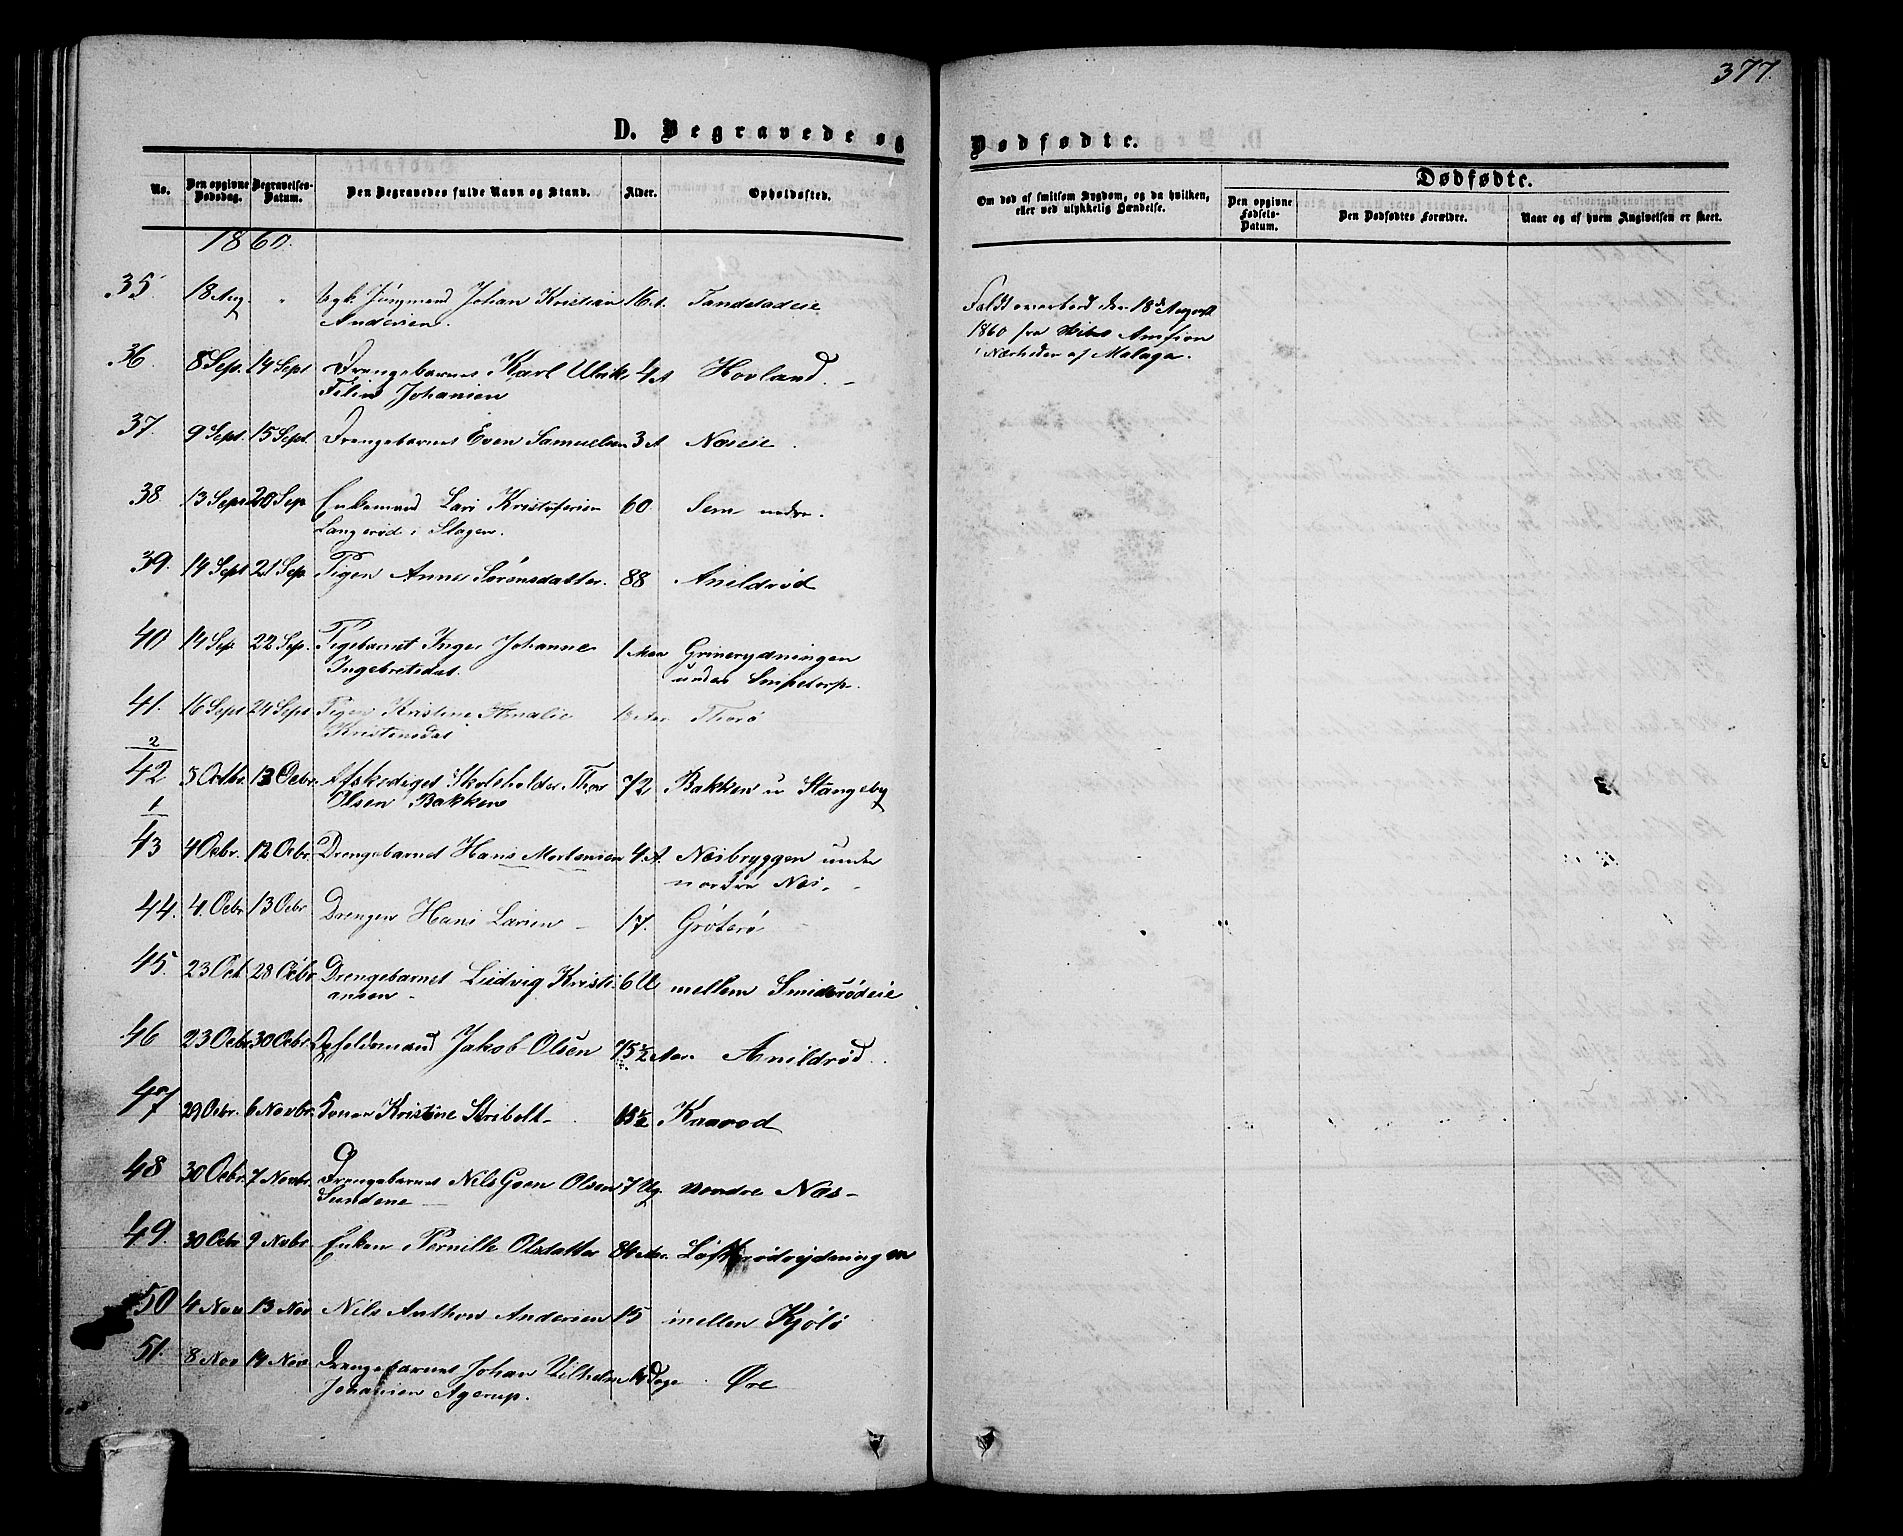 377.
D. Begravede og
Dødfødte.
No.
Den opgivne Dødsdag.
Begravelses-Datum.
Den Begravedes fulde Navn og Stand.
Alder.
Opholdssted.
Om død af smitsom Sygdom, og da hvilken, eller ved ulykkelig Hændelse.
Dødfødte.
Den opgivne Fødsels-Datum.
Den Dødfødtes Forældre.
Naar og af hvem Angivelsen er skeet.
1860.
35. 18 Aug. " Ugk. Jungmand Johan Kristian 16 A. Tandstadeie
Andersen.
Faldt overbord den 18de August
1860 fra Amfion
i Nærheden af Malaga.
36. 8 Sep. 14 Sept Drengebarnet Karl Ulrik 4 A Hovland. -
Johansen
37. 9 Sept. 15 Sept. Drengebarnet Even Samuelsen 3 A Næseie.
38. 13 Sept 20 Sep Enkemand Lars Kristofersen 60 Sem nedre.
Langerød i Slagen.
39. 14 Sept 21 Sep. Pigen Anne Sørensdatter. 88 Anildrød
40 14 Sep 22 Sep. Pigebarnet Inger Johanne 1 Maa Grinerydningen
Ingebretsdat. under Smidstorp.
41. 16 Sept 24 Sept Pigen Kristine Amalie Thorø
Kristensdat
2
42 5 Octbr. 13 Ocbr. Afskediget Skoleholder Thor 72 Bakken u Stangeby
Olsen Bakken
1
43 4 Ocbr. 12 Ocbr. Drengebarnet Hans Mortensen 4 A. Næsbryggen under
nordre Næs. -
44. 4. Ocbr. 13 Ocbr Drengen Hans Larsen - 17. Grøterø
45. 23 Oct. 28 Ocbr Drengebarnet Ludvig Kristi- 6 U mellem Smidsrødeie
ansen -
46 23 Ocbr 30 Ocbr. Opholdsmand Jakob Olsen 75½ Aar. Anildrød.
47 29 Ocbr. 6 Novbr. Konen Kristine Stribolt - Kaarød
48 30 Ocbr. 7 Novbr. Drengebarnet Nils Olsen 7 Ug. nordre Næs -
Sundene -
49. 30 Ocbr 9 Novbr Enken Pernille Olsdatter 84 Aar.
50 4 Nov 13 Nov Nils Anthon Andersen 15 mellem Kjølø
51. 8 Nov 14 Nov Drengebarnet Johan Vilhelm Dage Øre
Johansen Agerup.